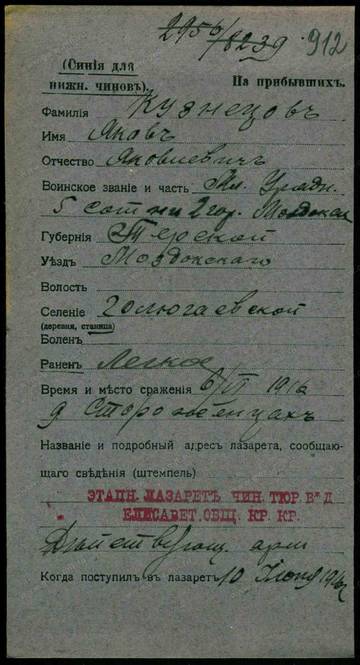 2956/8239 912
(Синія для
нижн. чиновъ). На прибывшихъ.
Фамилія Кузнецовъ
Имя Яковъ
Отчество Яковлевичъ
Воинское званіе и часть Мл. Урядн.
5 сотни 2 гор. Моздокск
Губернія Терской
Уѣздъ Моздокскаго
Волость
Селеніе Галюгаевской
(деревня, станица)
Боленъ
Раненъ Легкое
Время и мѣсто сраженія 6/VI 1916
д Стороженцахъ
Названіе и подробный адресъ лазарета, сообщаю-
щаго свѣдѣнія (штемпель)
ЭТАПН. ЛАЗАРЕТЪ ЧИН. ТЮР. Вѣ Д
ЕЛИСАВЕТ. ОБЩ. КР. КР.
Дѣйствующ. арм
Когда поступилъ въ лазаретъ 10 Іюня 1916